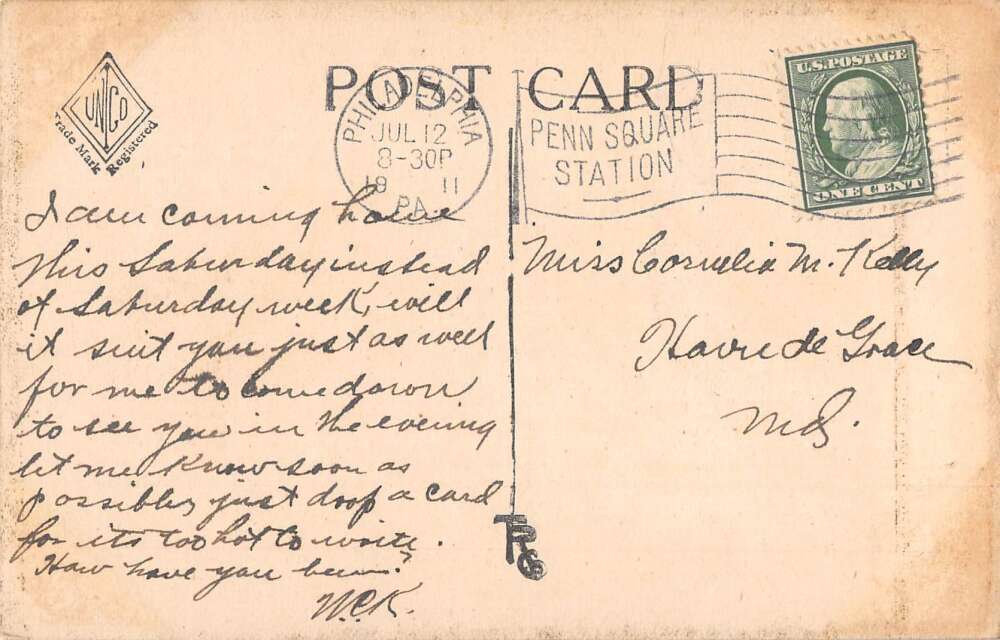 POST CARD
UNCO
Trade Mark Registered
PHILADELPHIA
JUL 12
8-30P
19 11
PA.
PENN SQUARE
STATION
U.S. POSTAGE
ONE CENT
I am coming home
this Saturday instead
of Saturday week, will
it suit you just as well
for me to come down
to see you in the evening
let me know soon as
possible, just drop a card
for its too hot to write.
How have you been?
W.C.K.
Miss Cornelia M. Kelly
Havre de Grace
Md.
TPC